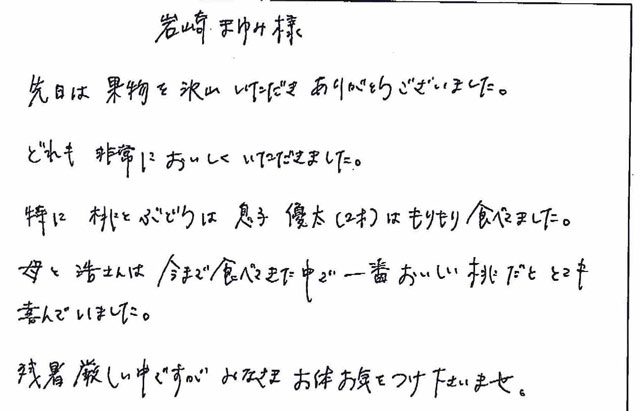 岩崎 まゆみ様
先日は 果物を 沢山 いただき ありがとうございました。
どれも 非常に おいしく いただきました。
特に 桃とぶどうは 息子 優太(2才)は もりもり 食べてました。
母と 浩さんは 今まで 食べてきた中で 一番 おいしい 桃だと とても
喜んでいました。
残暑 厳しい中ですが みなさま お体お気をつけ下さいませ。